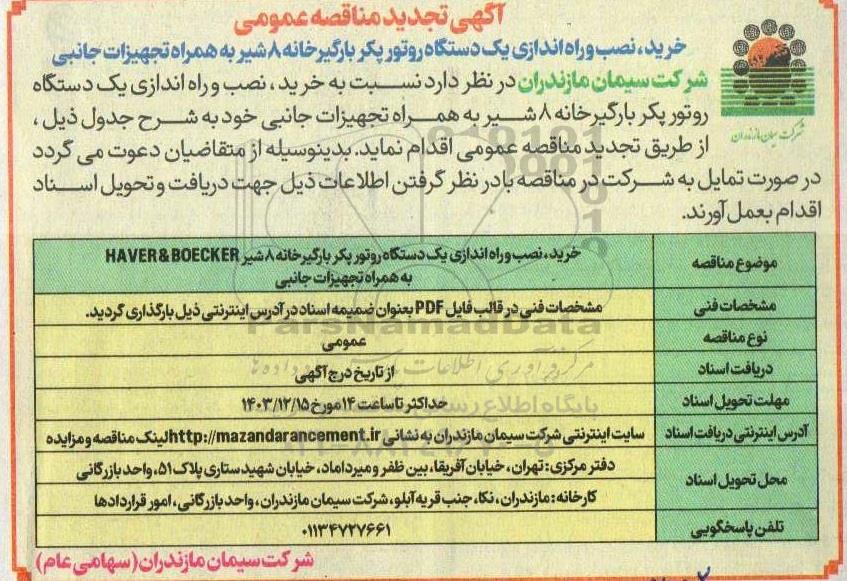 آگهی تجدید مناقصه عمومی
خرید، نصب و راه اندازی یک دستگاه روتور پکر بارگیرخانه ۸ شیر به همراه تجهیزات جانبی
شرکت سیمان مازندران در نظر دارد نسبت به خرید، نصب و راه اندازی یک دستگاه
روتور پکر بارگیرخانه ۸ شیر به همراه تجهیزات جانبی خود به شرح جدول ذیل،
از طریق تجدید مناقصه عمومی اقدام نماید. بدینوسیله از متقاضیان دعوت می گردد
در صورت تمایل به شرکت در مناقصه با در نظر گرفتن اطلاعات ذیل جهت دریافت و تحویل اسناد
اقدام بعمل آورند.
شرکت سیمان مازندران
موضوع مناقصه
خرید، نصب و راه اندازی یک دستگاه روتور پکر بارگیرخانه ۸ شیر HAVER & BOECKER
به همراه تجهیزات جانبی
مشخصات فنی
مشخصات فنی در قالب فایل PDF بعنوان ضمیمه اسناد در آدرس اینترنتی ذیل بارگذاری گردید.
نوع مناقصه
عمومی
دریافت اسناد
از تاریخ درج آگهی
مهلت تحویل اسناد
حداکثر تا ساعت ۱۴ مورخ ۱۴۰۳/۱۲/۱۵
آدرس اینترنتی دریافت اسناد
سایت اینترنتی شرکت سیمان مازندران به نشانی http://mazandarancement.ir لینک مناقصه و مزایده
محل تحویل اسناد
دفتر مرکزی: تهران، خیابان آفریقا، بین ظفر و میرداماد، خیابان شهید ستاری پلاک ۵۱، واحد بازرگانی
کارخانه: مازندران، نکا، جنب قریه آبلو، شرکت سیمان مازندران، واحد بازرگانی، امور قراردادها
تلفن پاسخگویی
۰۱۱۳۴۷۲۷۶۶۱
شرکت سیمان مازندران (سهامی عام)
ParsNamadData